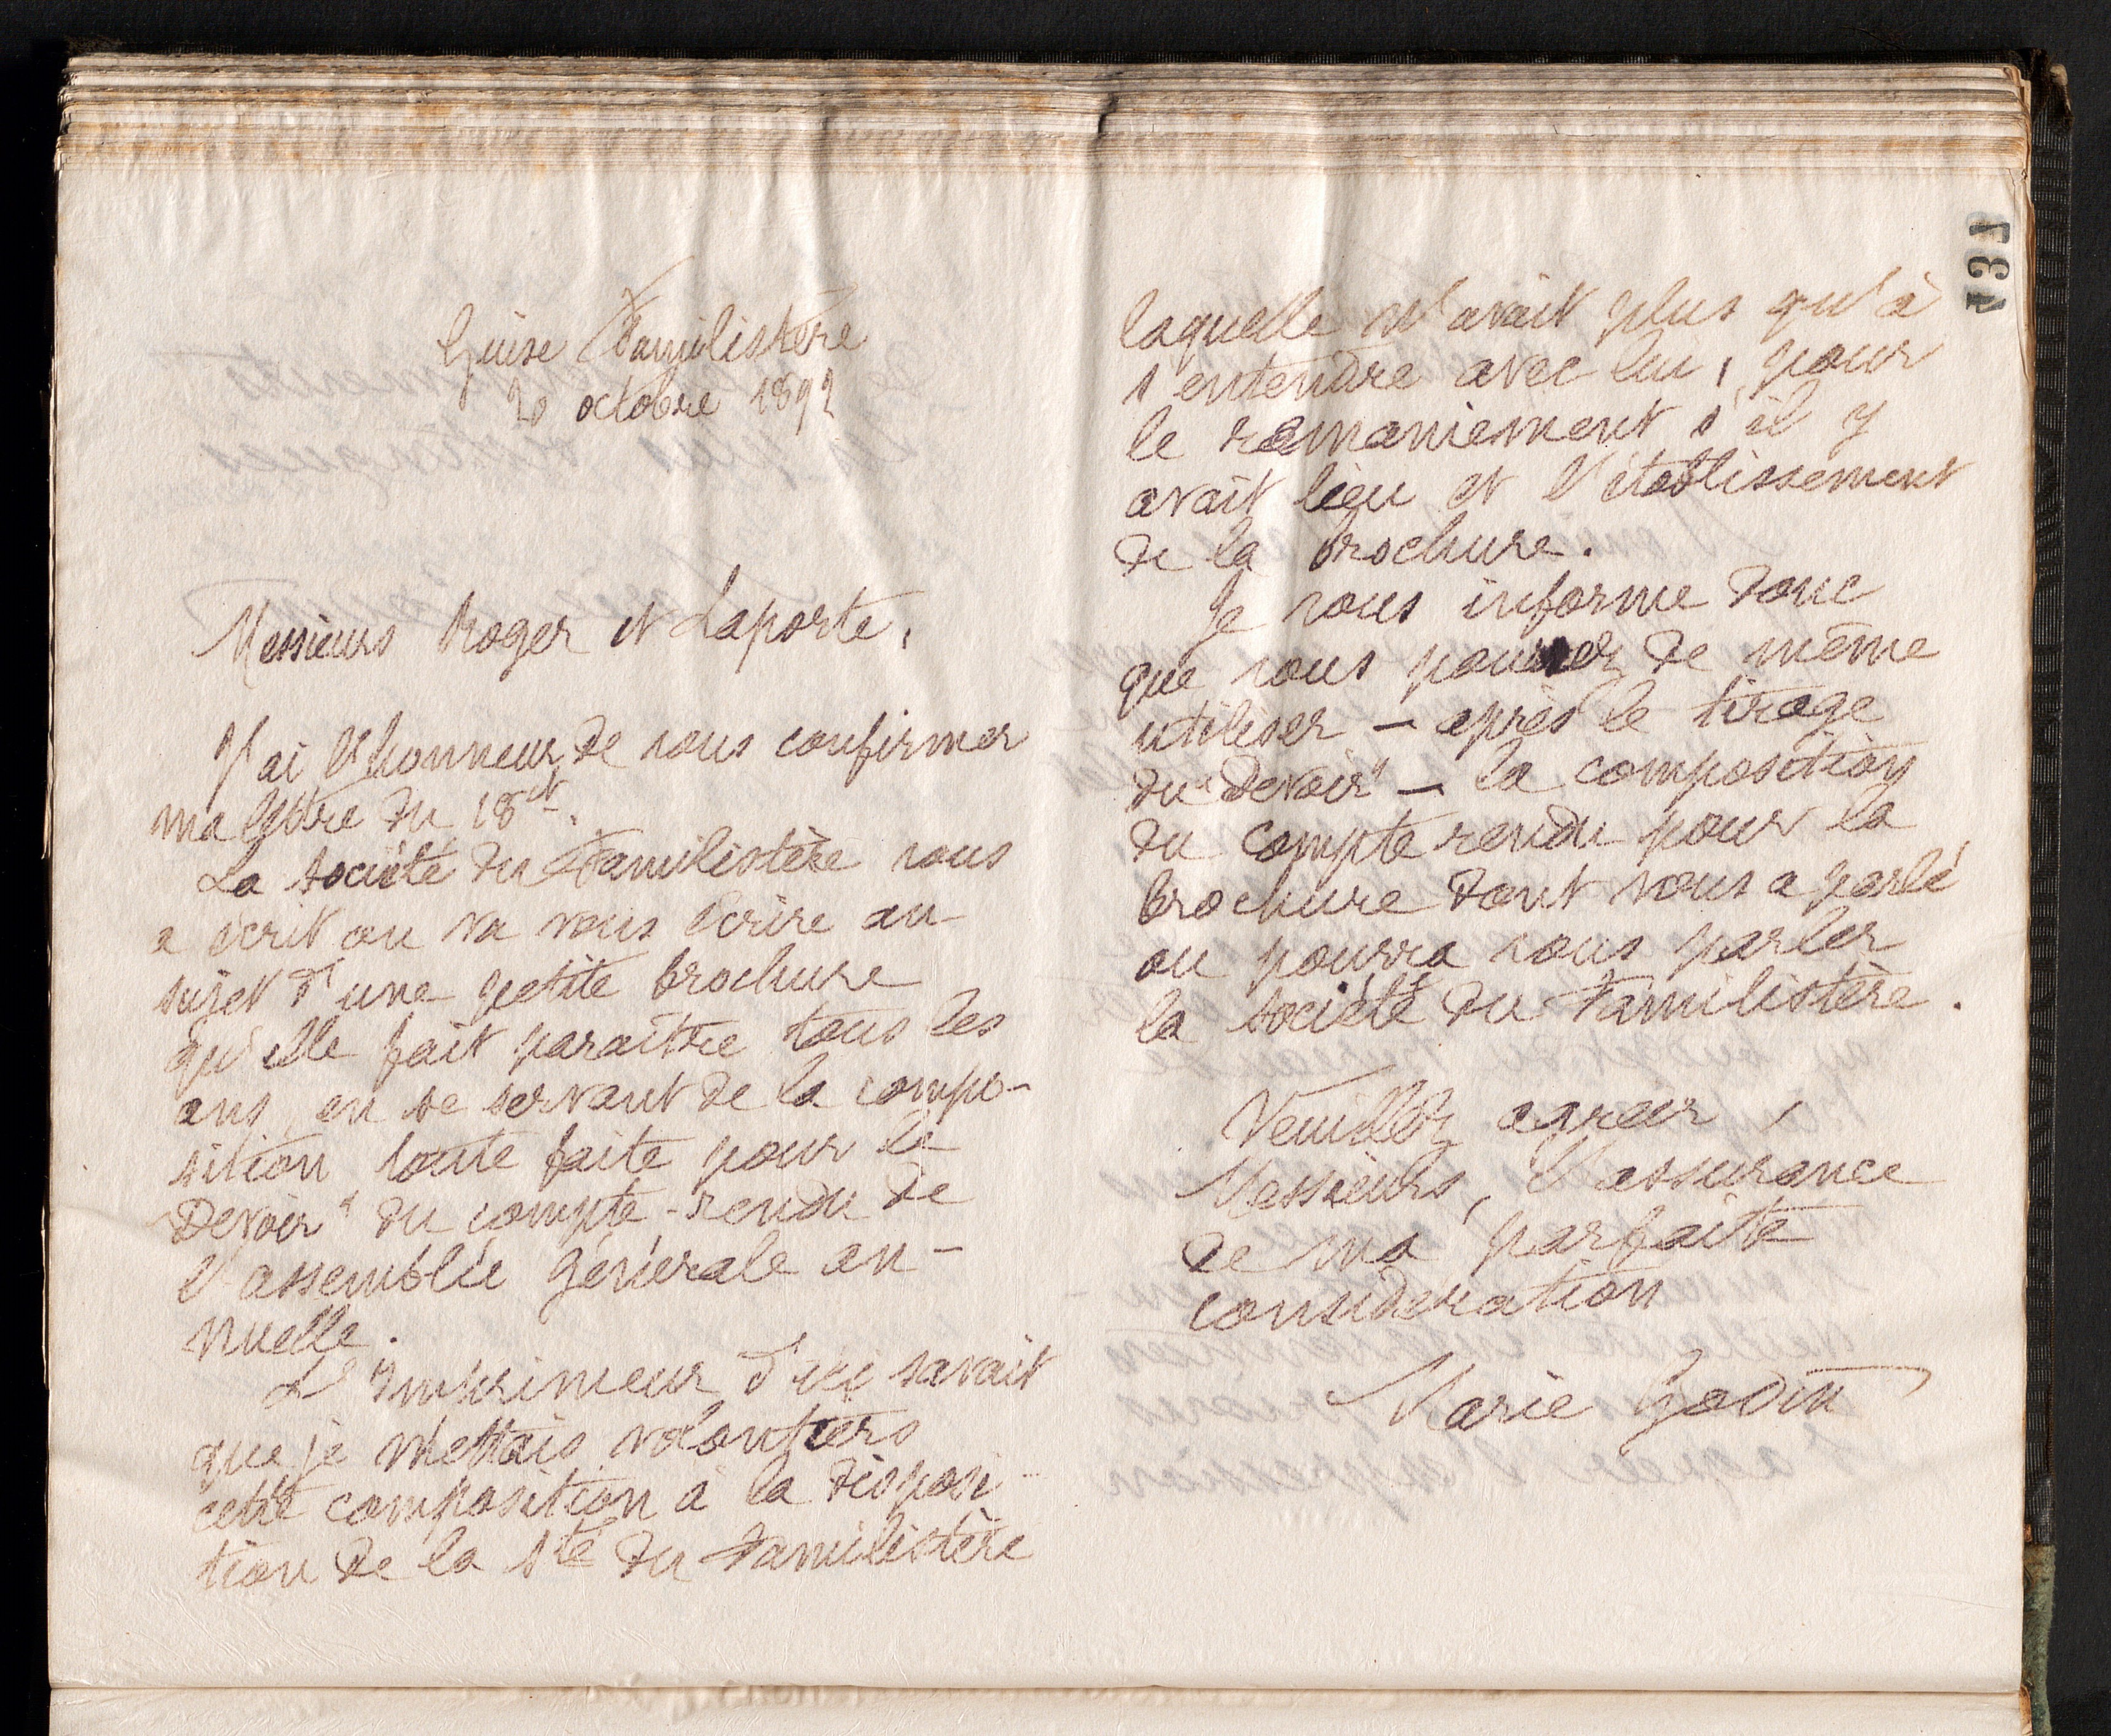 Guise Familistère
20 octobre 1892
Messieurs Roger et Laporte,
J'ai l'honneur de vous confirmer
ma lettre du 18 ct.
La Société du Familistère vous
a écrit ou va vous écrire au
sujet d'une petite brochure
qu'elle fait paraître tous les
ans, en se servant de la compo-
sition toute faite pour le
"Devoir" du compte-rendu de
l'assemblée générale an-
nuelle.
L'imprimeur d'ici savait
que je mettais volontiers
cette composition à la disposi-
tion de la Sté du Familistère
laquelle n'avait plus qu'à
s'entendre avec lui, pour
le remaniement s'il y
avait lieu et l'établissement
de la brochure.
Je vous informe donc
que vous pourrez de même
utiliser - après le tirage
du "Devoir" - la composition
du compte rendu pour la
brochure dont vous a parlé
ou pourra vous parler
la Société du Familistère.
Veuillez agréer,
Messieurs, l'assurance
de ma parfaite
considération
Marie Godin